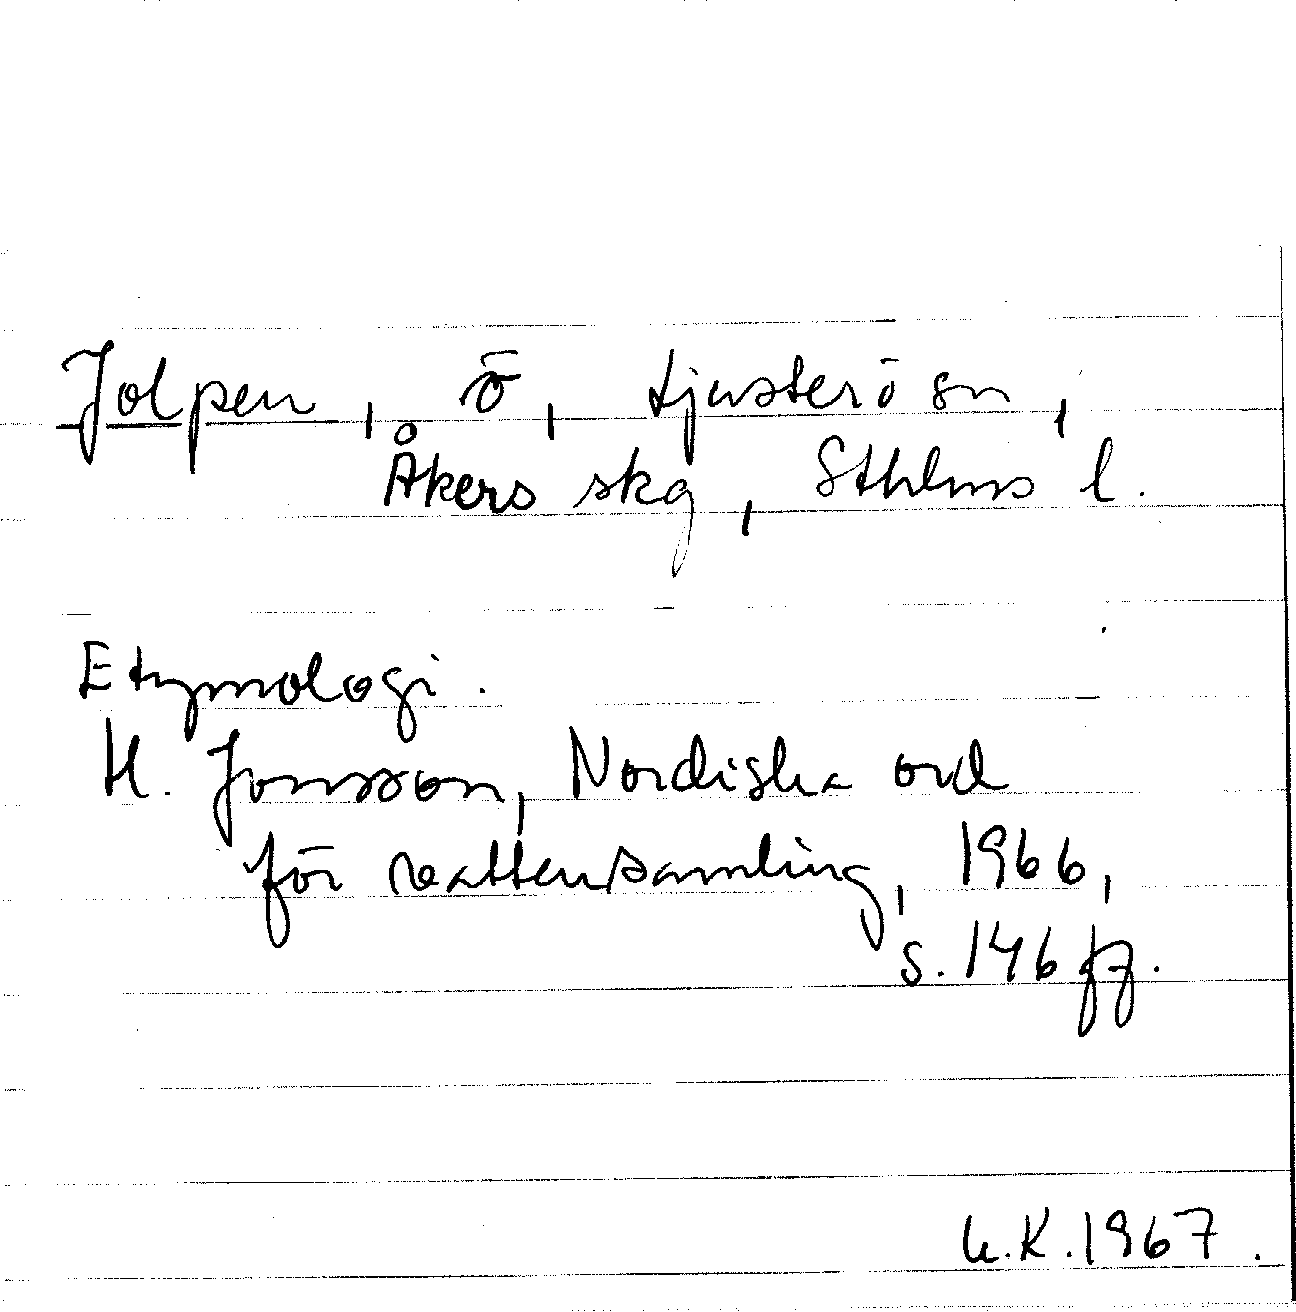 Jolpen, ö, Ljusterö sn,
Åkers skg, Sthlms l.
Etymologi.
H. Jonsson, Nordiska ord
för vattensamling, 1966,
s. 146 ff.
K. 1967.